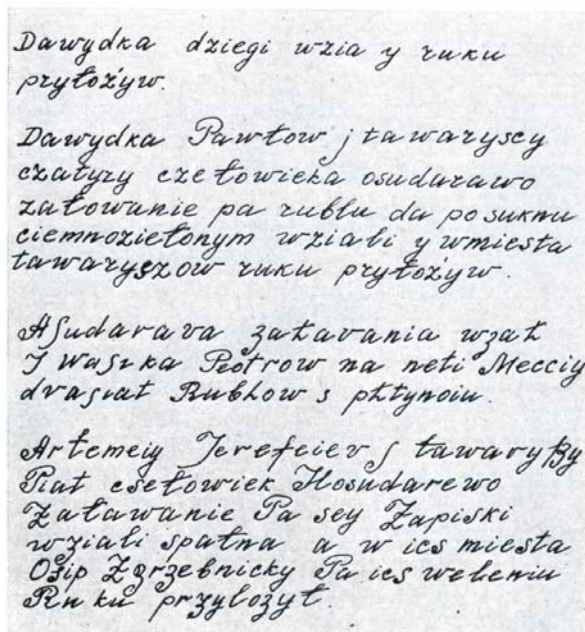 Dawydka dziegi wzia y ruku
pryłożyw.
Dawydka Pawłow j tawaryscy
czatyry człowieka osudarawo
załowanie pa rublu da po suknu
ciemnoziełonym wziali y wmiesta
tawaryszow ruku pryłożyw.
ASudarava załavania wzał
J Waska Piotrow na neti Mecciy
dvasiat Rubłow s płtynoiu.
Artemeiy Jerefeiev s tawaryßy
Piat csełowiek Hosudarewo
Załawanie Pa sey Zapiski
wziali spałna a w ics miesta
Osip Zgrzebnicky Pa ics weleniu
Ruku przylozył.